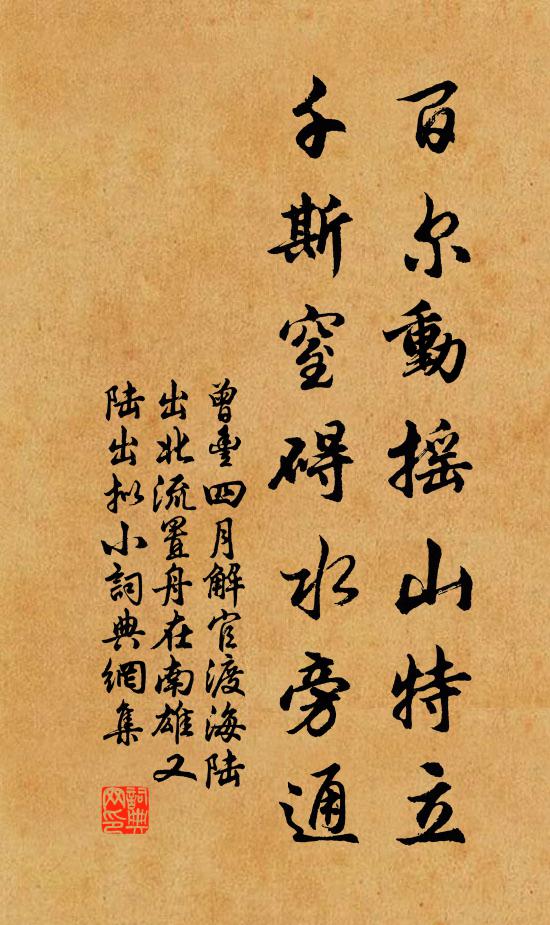 百尔動摇山特立
千斯窒碍水旁通
曾豊四月解官渡海陆
出北流置舟在南雄又
陆出拟小詞典網集
詞典網印